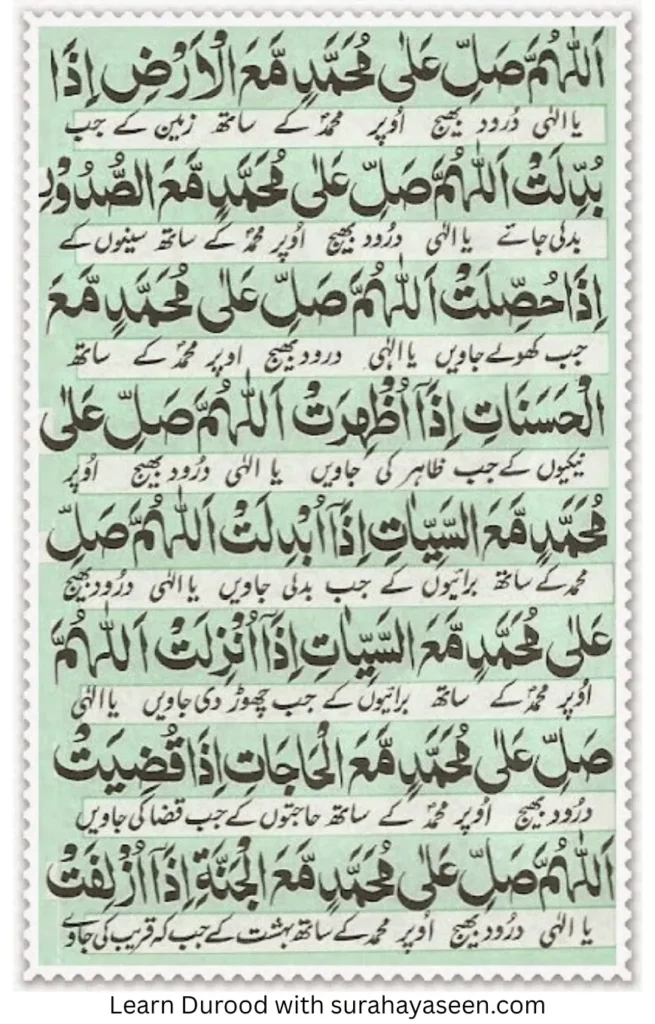 اَللّٰهُمَّ صَلِّ عَلٰى مُحَمَّدٍ مَّعَ الْاَرْضِ اِذَا
یا الٰہی دُرود بھیج اُوپر محمدؐ کے ساتھ زمین کے جب
بُدِّلَتْ اَللّٰهُمَّ صَلِّ عَلٰى مُحَمَّدٍ مَّعَ الصُّدُوْرِ
بدلی جاتے یا الٰہی دُرود بھیج اُوپر محمدؐ کے ساتھ سینوں کے
اِذَا حُصِّلَتْ اَللّٰهُمَّ صَلِّ عَلٰى مُحَمَّدٍ مَّعَ
جب کھولے جاویں یا الٰہی درود بھیج اوپر محمدؐ کے ساتھ
الْحَسَنَاتِ اِذَآ اُظْهِرَتْ اَللّٰهُمَّ صَلِّ عَلٰى
نیکیوں کے جب ظاہر کی جاویں یا الٰہی دُرود بھیج اُوپر
مُحَمَّدٍ مَّعَ السَّيِّاٰتِ اِذَآ اُبْدِلَتْ اَللّٰهُمَّ صَلِّ
محمدؐ کے ساتھ برائیوں کے جب بدلی جاویں یا الٰہی دُرود بھیج
عَلٰى مُحَمَّدٍ مَّعَ السَّيِّاٰتِ اِذَآ اُنْزِلَتْ اَللّٰهُمَّ
اُوپر محمدؐ کے ساتھ برائیوں کے جب چھوڑ دی جاویں یا الٰہی
صَلِّ عَلٰى مُحَمَّدٍ مَّعَ الْحَاجَاتِ اِذَا قُضِيَتْ
دُرود بھیج اُوپر محمدؐ کے ساتھ حاجتوں کے جب قضا کی جاویں
اَللّٰهُمَّ صَلِّ عَلٰى مُحَمَّدٍ مَّعَ الْجَنَّةِ اِذَآ اُزْلِفَتْ
یا الٰہی دُرود بھیج اُوپر محمدؐ کے ساتھ بہشت کے جب کہ قریب کی جاوے
Learn Durood with surahayaseen.com